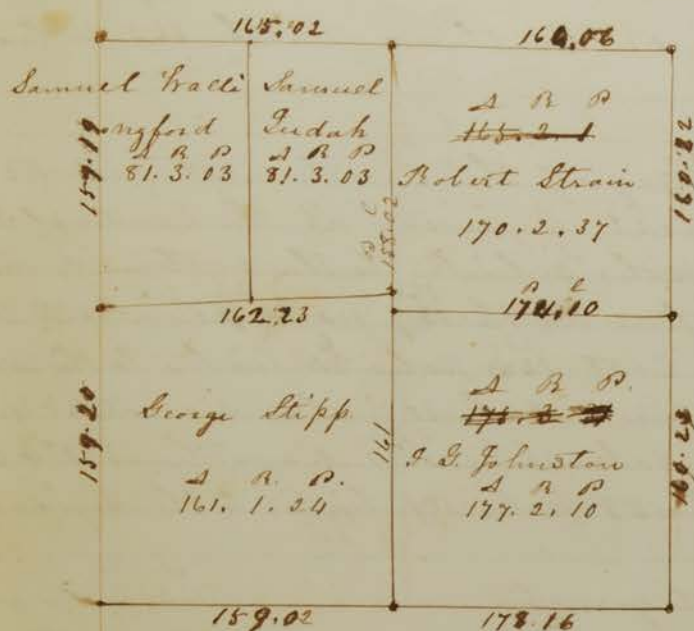 165.02
160.06
Samuel Walli
ngford
A R P
81.3.03
159.19
Samuel
Judah
A R P
81.3.03
P C
158.02
A R P
165.2.1
Robert Strain
170.2.37
160.22
162.23
P C
174.10
159.20
George Stipp
A R P.
161.1.24
161
A R P.
I. G. Johnston
A R P
177.2.10
160.23
159.02
178.16